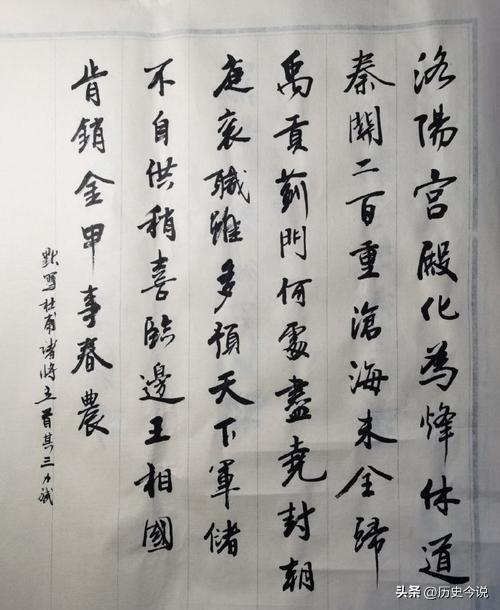 洛陽宮殿化為烽休道
秦關二百重滄海未全歸
禹貢薊門何處盡堯封朝
庭袞職雖多預天下軍儲
不自供稍喜臨邊王相國
肯銷金甲事春農
默寫杜甫諸將五首其三
头条 @历史今说